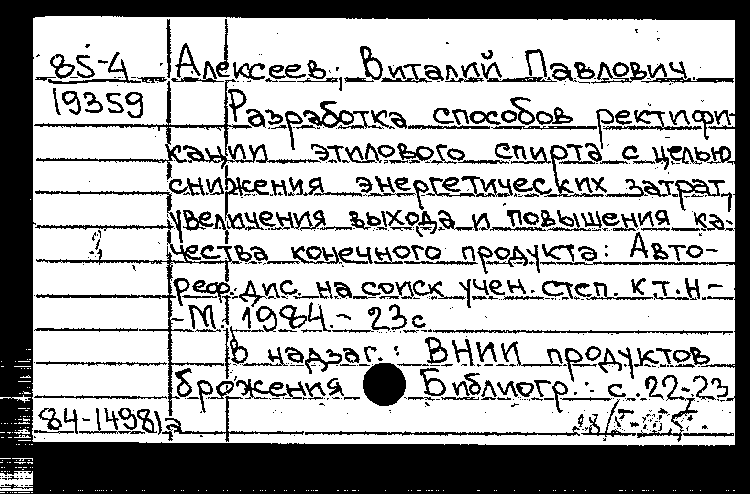 85-4 Алексеев, Виталий Павлович
19359 Разработка способов ректифи-
кации этилового спирта с целью
снижения энергетических затрат,
увеличения выхода и повышения ка-
чества конечного продукта: Авто-
реф. дис. на соиск учен. степ. к.т.н-
-М. 1984.- 23с
В надзаг.: ВНИИ продуктов
брожения Библиогр.: с.22-23
84-14981а